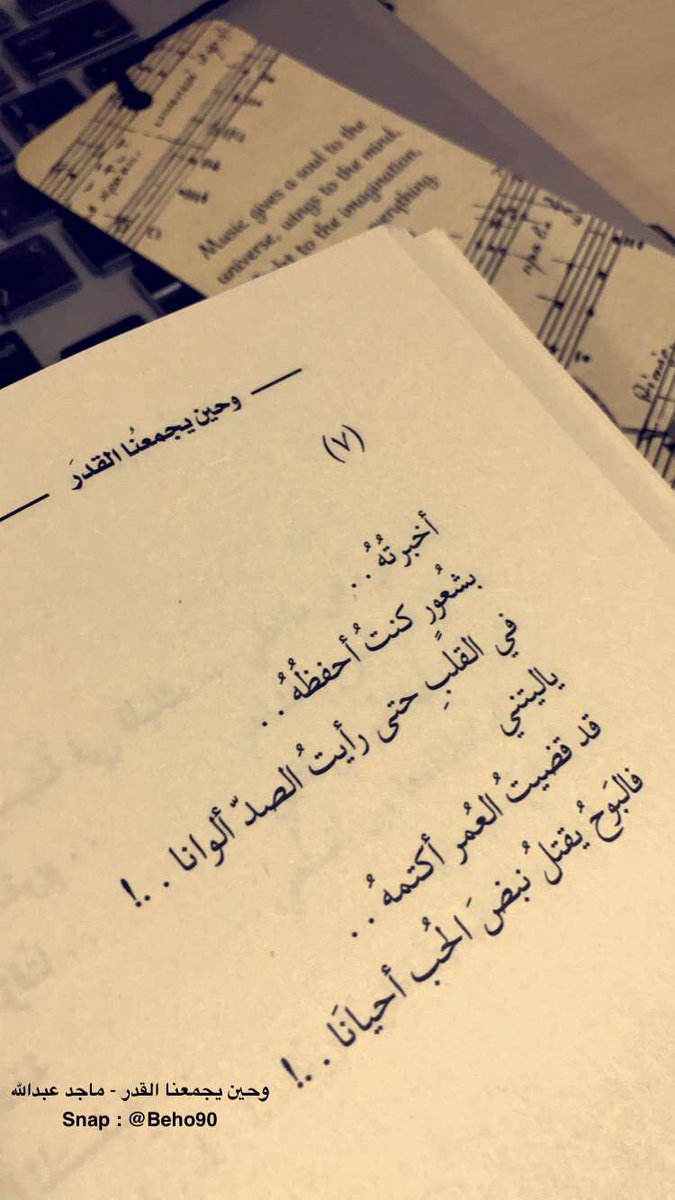 Music gives a soul to the
universe, wings to the mind,
to the imagination,
everything.
وحين يجمعُنا القدرَ
(٧)
أخبرتُهُ . .
بشعُورٍ كنتُ أحفظُهُ . .
في القلبِ حتى رأيتُ الصدّ ألوانا . . !
ياليتني
قد قضيتُ العُمر أكتمهُ . .
فالبَوحُ يُقتلُ نبضَ الحُب أحيانَا . . !
وحين يجمعنا القدر - ماجد عبدالله
Snap : @Beho90